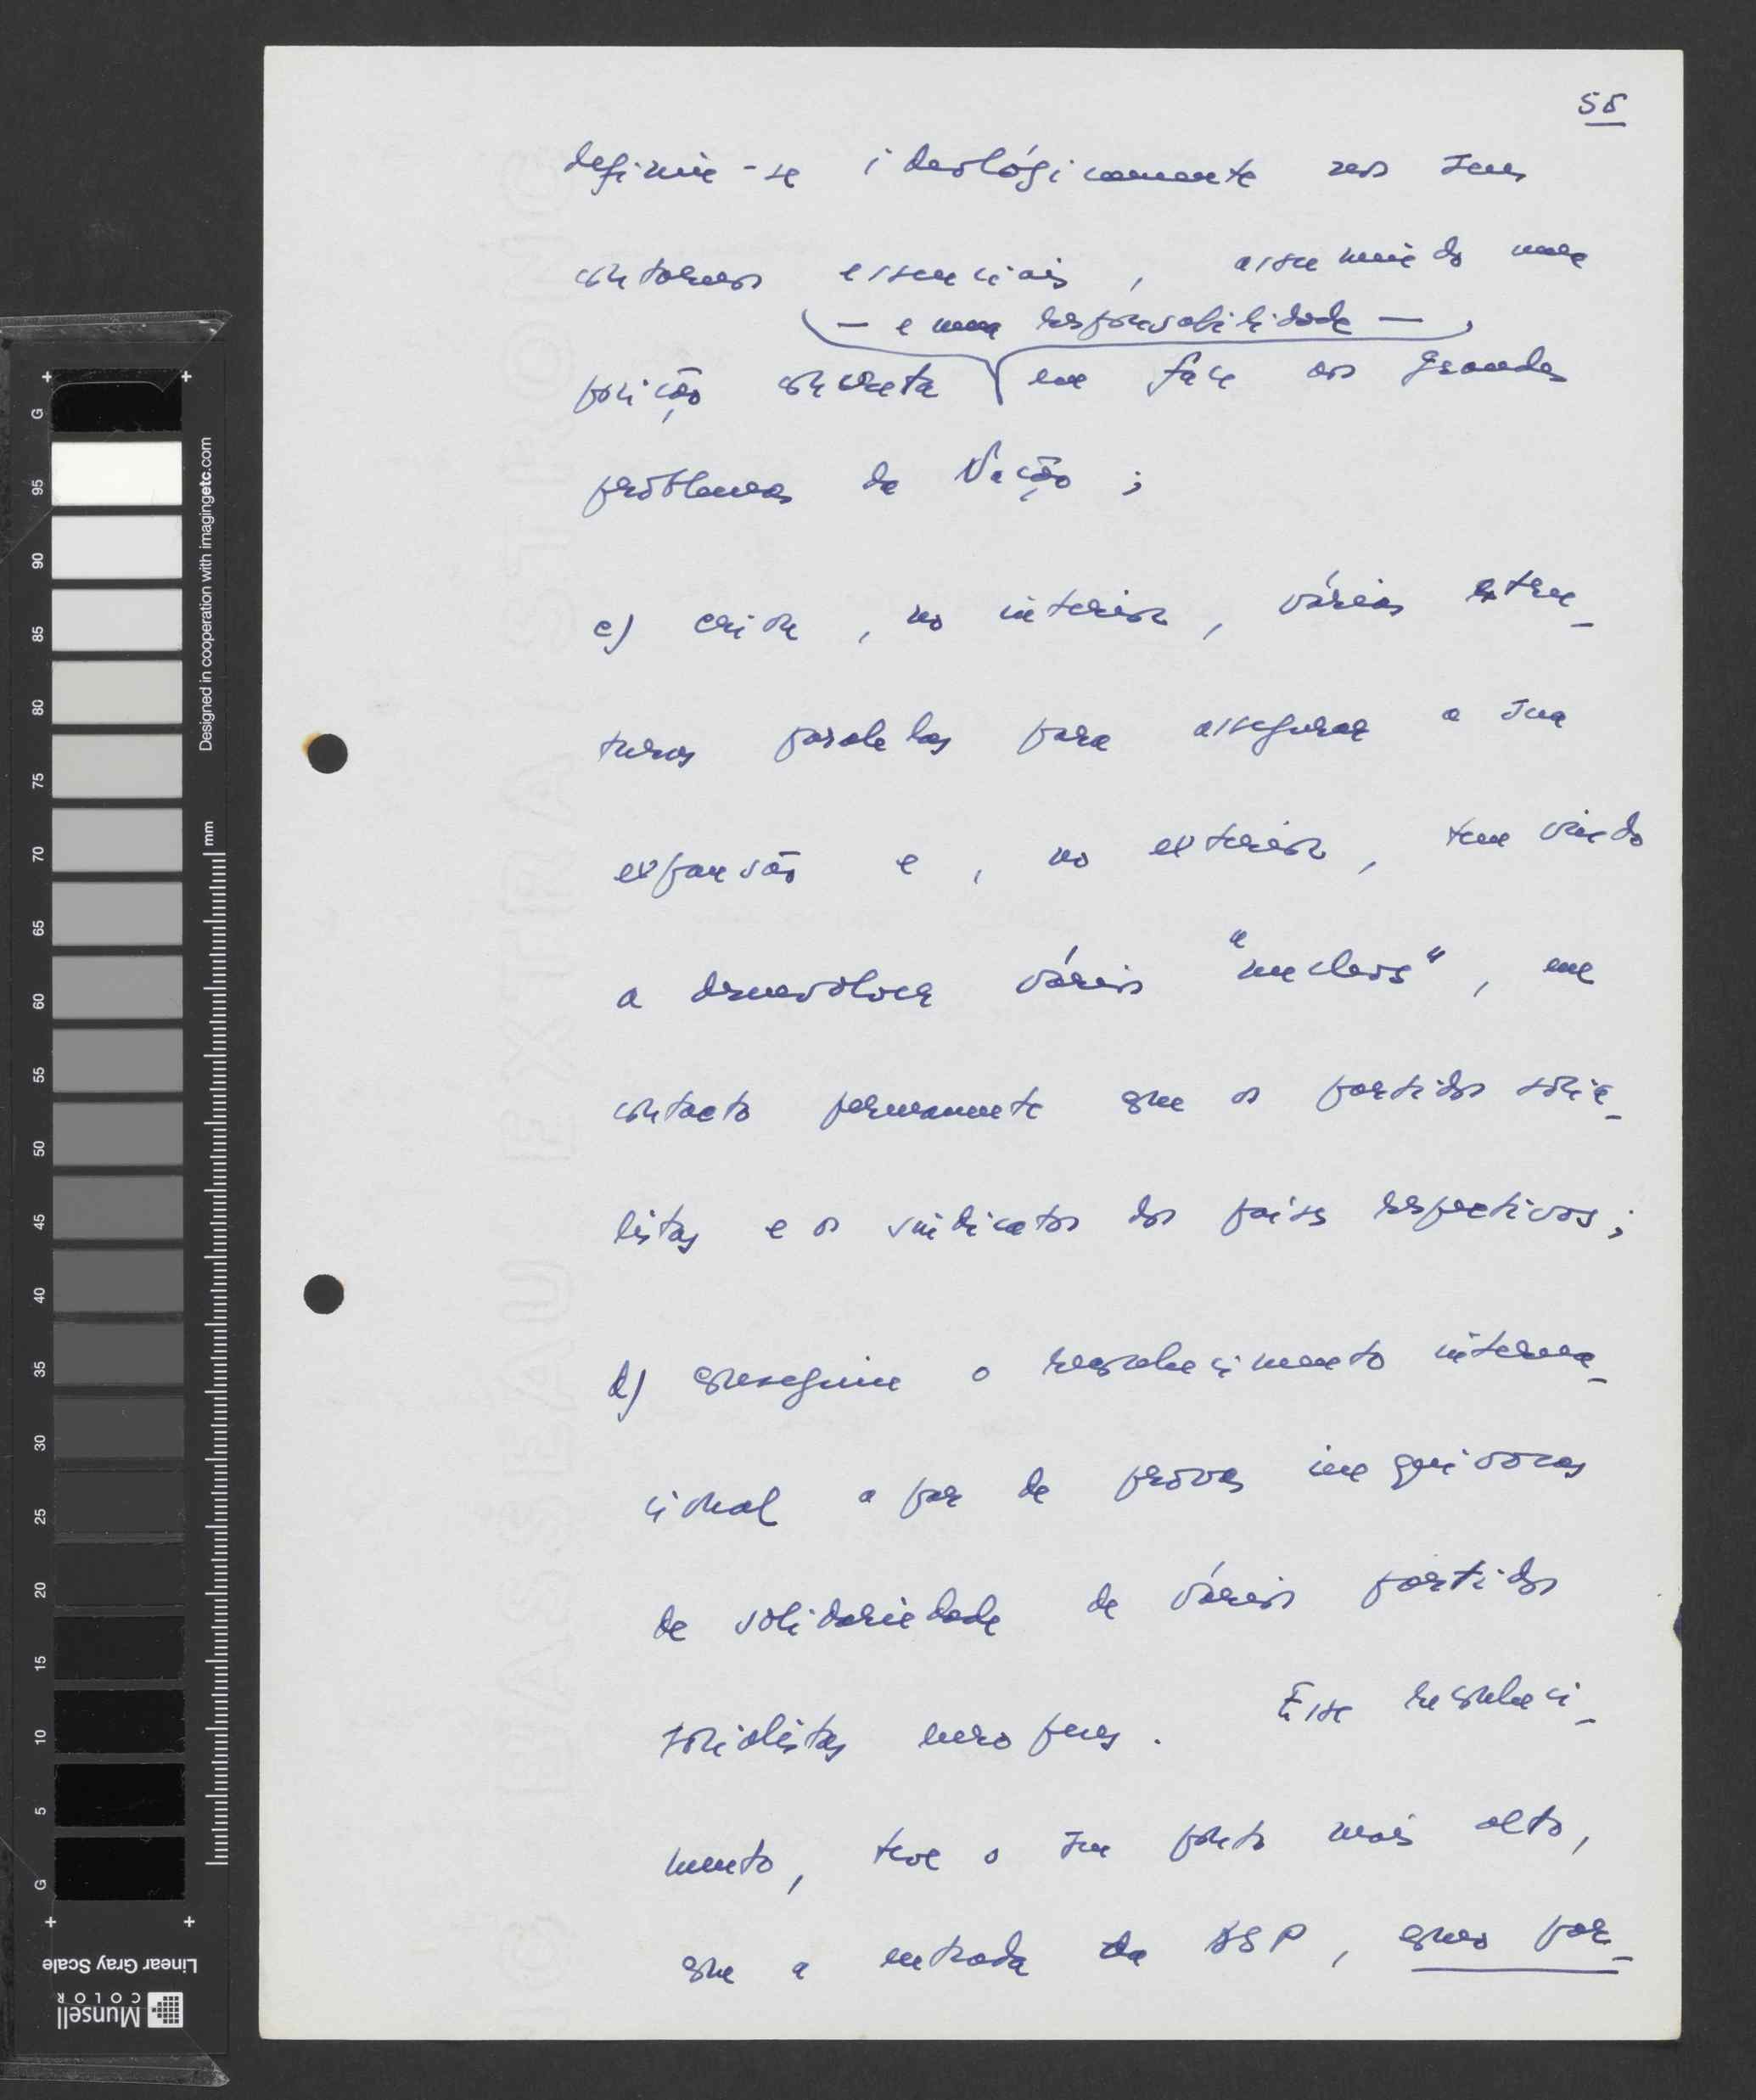 58
definir-se ideológicamente nos seus
contornos essenciais, assumindo uma
— e uma responsabilidade —
posição concreta em face aos grandes
problemas da Nação;
c) criou, no interior, várias estru-
turas paralelas para assegurar a sua
expansão e, no exterior, tem vindo
a desenvolver vários "nucleos", em
contacto permanente com os partidos socia-
listas e os sindicatos dos paises respectivos;
d) conseguiu o reconhecimento interna-
cional a par de provas inequivocas
de solidariedade de vários partidos
socialistas europeus. Esse reconheci-
mento, teve o seu ponto mais alto,
com a entrada da ASP, como par-
G
95
90
85
80
75
70
65
60
55
50
45
40
35
30
25
20
15
10
5
G
mm
Designed in cooperation with imagingetc.com
Linear Gray Scale
Munsell
COLOR